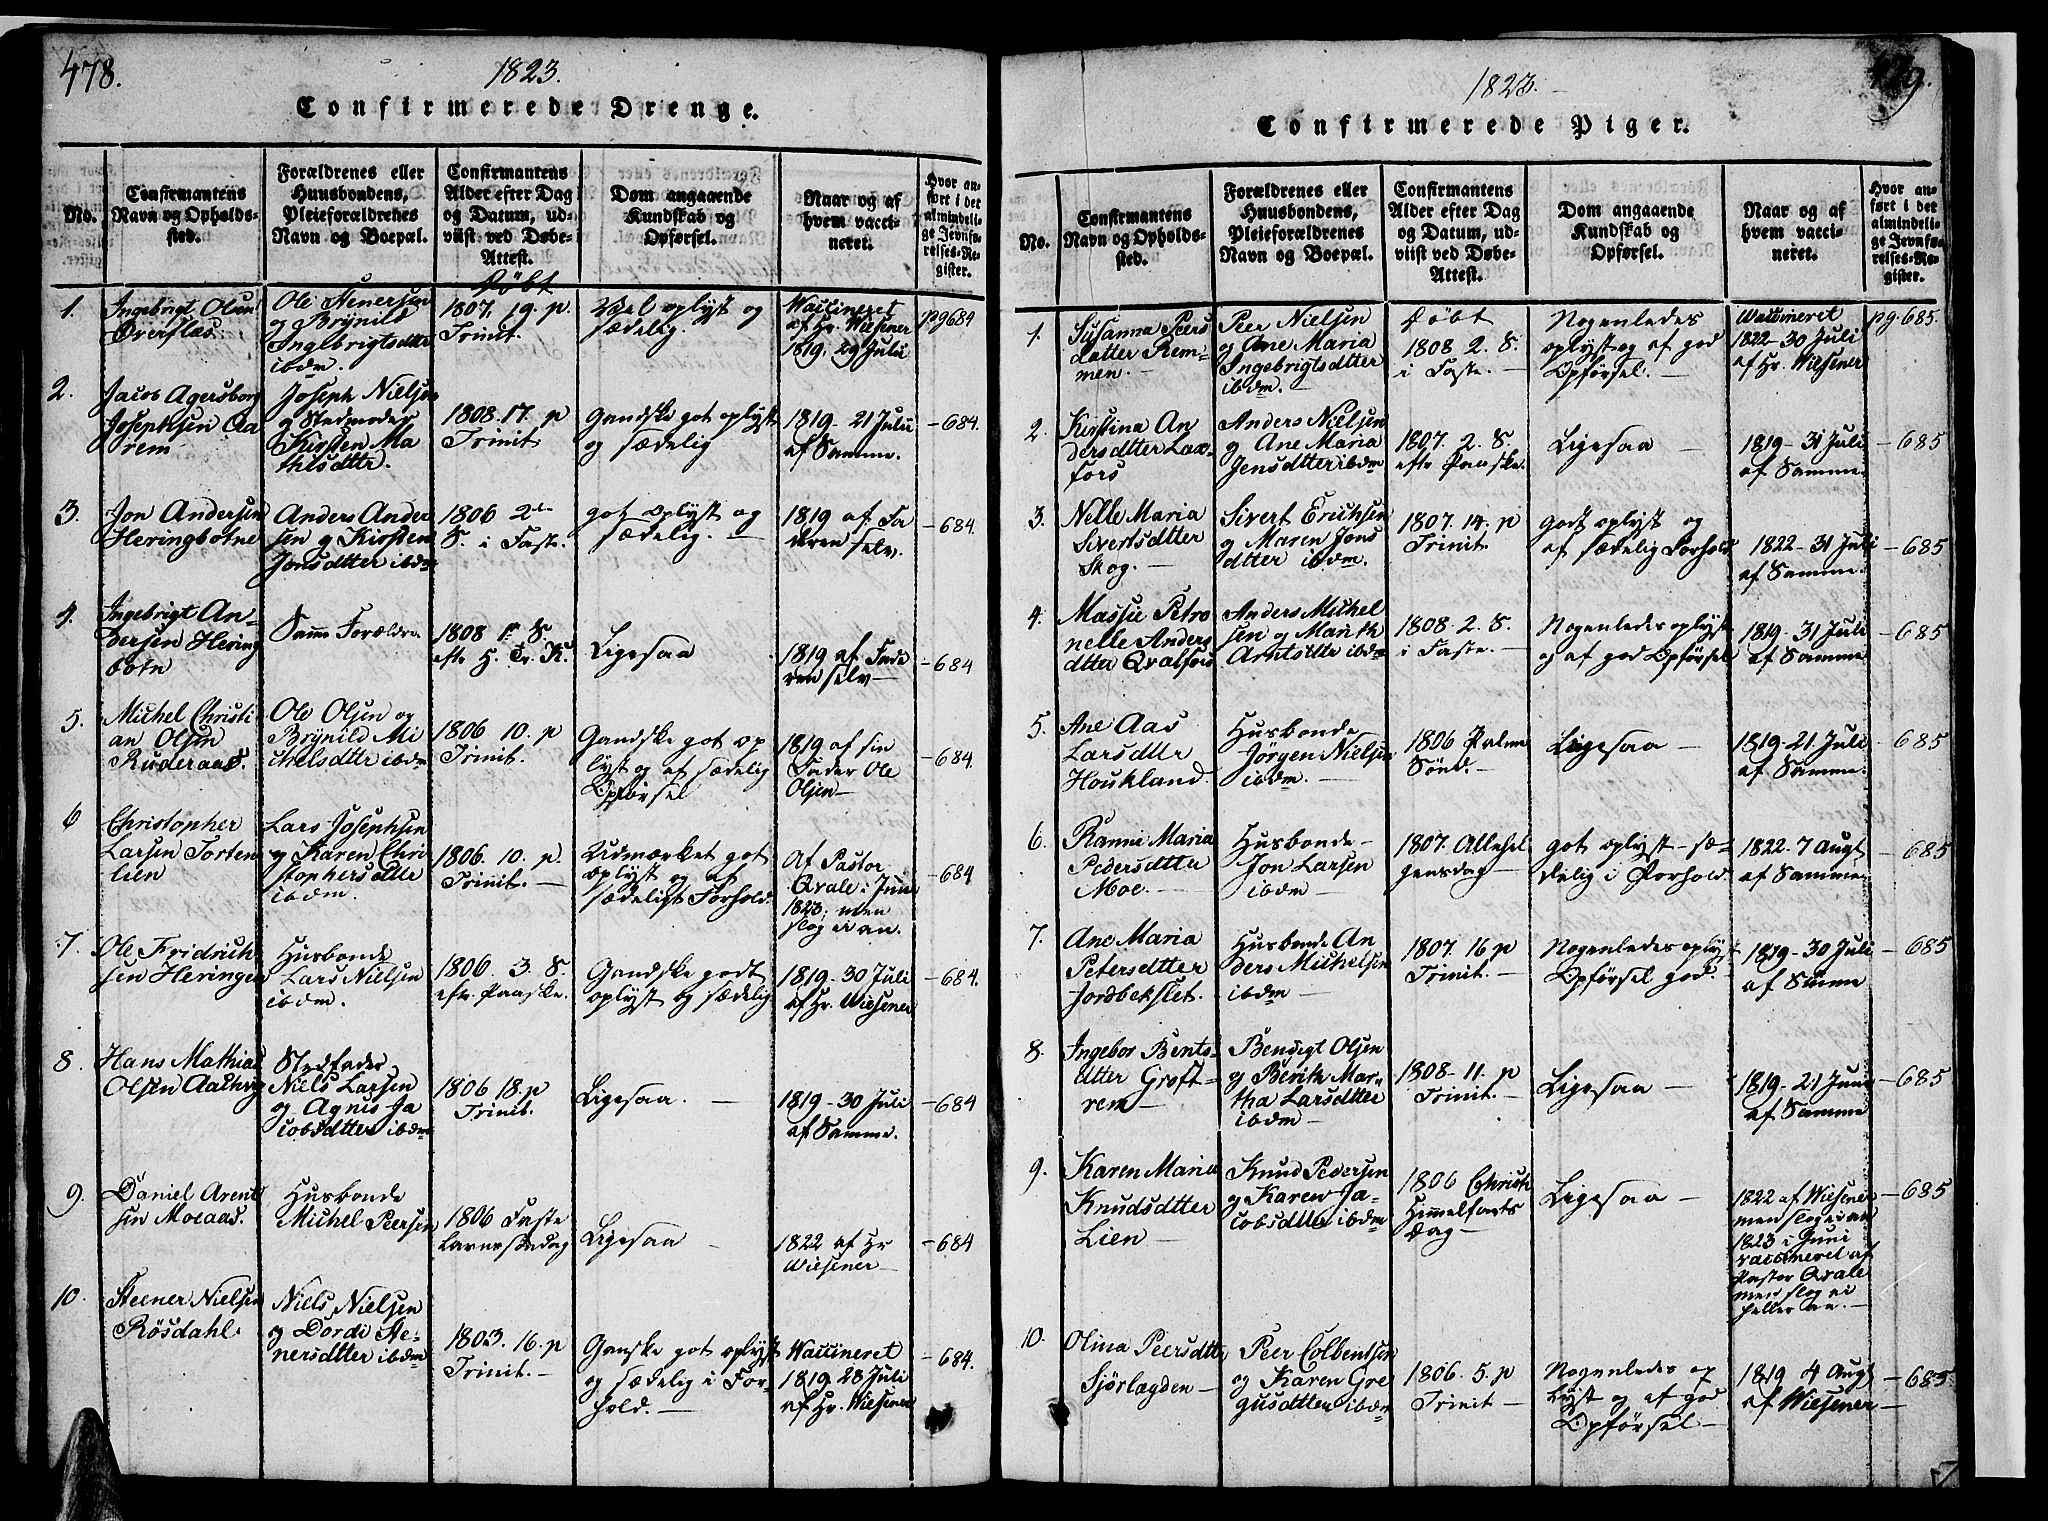 478.
1823.
Confirmerede Drenge.
No.
Confirmantens
Navn og Opholds-
sted.
Forældrenes eller
Huusbondens,
Pleieforældrenes
Navn og Boepæl.
Confirmantens
Alder efter Dag
og Datum, ud-
viist ved Døbe-
Attest.
Dom angaaende
Kundskab og
Opførsel.
Naar og af
hvem vacci-
neret.
Hvor an-
ført i det
almindeli-
ge Jevnfø-
relses-Re-
gister.
Døbt
1.
Ingebrigt Olsen
Øverslæs
Ole Stenersen
og Brÿnild
Ingebrigtsdtter
ibdm.
1807. 19. p.
Trinit.
Vel oplyst og
sædelig.
Waccineret
af Hr. Wiesener
1819. 29 Julii
pg 684
2.
Jacob Agersborg
Josephsen Aa
rem
Joseph Nielsen
og Stedmoder
Kirsten Ma
thisdtter.
1808. 17. p
Trinit
Gandske got oplyst
og sædelig
1819 - 21 Julii
af Samme.
- 684.
3.
Jon Andersen
Heringbotne
Anders Ander
sen og Kirsten
Jonsdtter ibdm
1806 2den
S. i Faste.
got oplyst og
sædelig.
1819 af Fa
deren selv.
- 684.
4.
Ingebrigt An-
dersen Hering
botn
Samme Forældre.
1808 1ste S.
eftr H. Tr. K.
Ligesaa
1819 af Fade
ren selv -
- 684
5.
Michel Christi
an Olsen
Ruderaas.
Ole Olsen og
Brÿnild Mi
chelsdtter ibdm
1806 10. p
Trinit.
Gandske got op
lyst og af sædelig
Opførsel
1819 af sin
Fader Ole
Olsen -
- 684.
6
Christopher
Larsen Torten
lien
Lars Josephsen
og Karen Chri
stophersdtter
ibdm.
1806. 10. p.
Trinit. -
Udmærket got
oplyst og af
sædeligt Forhold.
Af Pastor
Qvale i Juni
1823; men
slog ei an.
- 684
7.
Ole Fridrich
sen Heringen
Husbonde
Lars Nielsen
ibdm.
1806. 3. S.
eftr. Paaske.
Gandske godt
oplyst og sædelig
1819 - 30 Juli
af Hr. Wiesener
- 684.
8.
Hans Mathias
Olsen Aakvig
Stedfader
Niels Larsen
og Agnis Ja
cobsdtter ibdm
1806 18. p
Trinit.
Ligesaa. -
1819 - 30 Juli
af Samme.
- 684
9.
Daniel Arent
sen Moeaas.
Husbonde
Michel Peersen
1806 Faste
lavns Søndag
Ligesaa -
1822 af Hr
Wiesener -
- 684
10.
Steener Nielsen
Røsdahl
Niels Nielsen
og Dordi Ste-
nersdtter ibdm
1803. 16. p
Trinit. -
Ganske got oplyst
og sædelig i For-
hold. -
Waccineret
1819 28 Juli
af Hr. Wiesener
- 684.
479.
1823.
Confirmerede Piger.
No.
Confirmantens
Navn og Opholds-
sted.
Forældrenes eller
Huusbondens,
Pleieforældrenes
Navn og Boepæl.
Confirmantens
Alder efter Dag
og Datum, ud-
viist ved Døbe-
Attest.
Dom angaaende
Kundskab og
Opførsel.
Naar og af
hvem vacci-
neret.
Hvor an-
ført i det
almindeli-
ge Jevnfø-
relses-Re-
gister.
1.
Susanna Peers
datter Rem-
men. -
Peer Nielsen
og Ane Maria
Ingebrigtsdtter
ibdm. -
Døbt
1808. 2. S.
i Faste. -
Nogenledes
oplyst og af god
Opførsel. -
Waccineret
1822 - 30 Juli
af Hr. Wiesener
pg. 685.
2.
Kirstina An
dersdtter Lax-
fors
Anders Nielsen
og Ane Maria
Jensdtter ibdm
1807. 2. S.
eftr Paaske.
Ligesaa -
1819 - 31 Juli
af Samme
- 685
3.
Nelle Maria
Sivertsdtter
Skog. -
Sivert Erichsen
og Maren Jons
dtter ibdm.
1807. 14. p
Trinit.
Godt oplyst og
af sædelig Forhold
1822 - 31 Juli
af Samme.
- 685
4.
Massie Petro
nelle Anders
dtter Qvalfors
Anders Michel
sen og Marith
Arntsdtter ibdm
1808. 2. S.
i Faste. -
Nogenledes oplyst
og af god Opførsel
1819 - 31 Juli
af Samme
- 685
5.
Ane Aas
Larsdtter
Houkland.
Husbonde
Jørgen Nielsen
ibdm. -
1806 Palme
Sønd. -
Ligesaa -
1819 - 21. Juli
af Samme.
- 685
6.
Ranni Maria
Pedersdtter
Moe. -
Husbonde -
Jon Larsen
ibdm -
1807. Allehel
gensdag -
got oplyst - sæ-
delig i Forhold.
1822. 7 Augt
af Samme
- 685
7.
Ane Maria
Petersdtter
Jordbekslet.
Husbonde An
ders Michelsen
ibdm -
1807. 16 p
Trinit. -
Nogenledes oplyst
Opførsel god.
1819 - 30 Juli
af Samme
- 685
8.
Ingebor Bents-
dtter Groft-
rem -
Bendigt Olsen
og Berith Mar-
tha Larsdtter
ibdm -
1808 - 11. p
Trinit. -
Ligesaa -
1819 - 21 Juni
af Samme
- 685
9.
Karen Maria
Knudsdtter
Lien -
Knud Pedersen
og Karen Ja-
cobsdtter ibdm
1806 Christi
Himmelfarts
Dag -
Ligesaa -
1822 af Wiesener
men slog ei an
1823 i Juni
vaccineret af
Pastor Qvale
men slog ei
heller an. -
- 685
10.
Olina Peersdtter
Sjørlægden -
Peer Colbentsen
og Karen Gre
gusdtter ibdm
1806. 5. p
Trinit -
Nogenledes op
lyst og af god
Opførsel -
1819 4 Augt
af Wiesener
- 685.